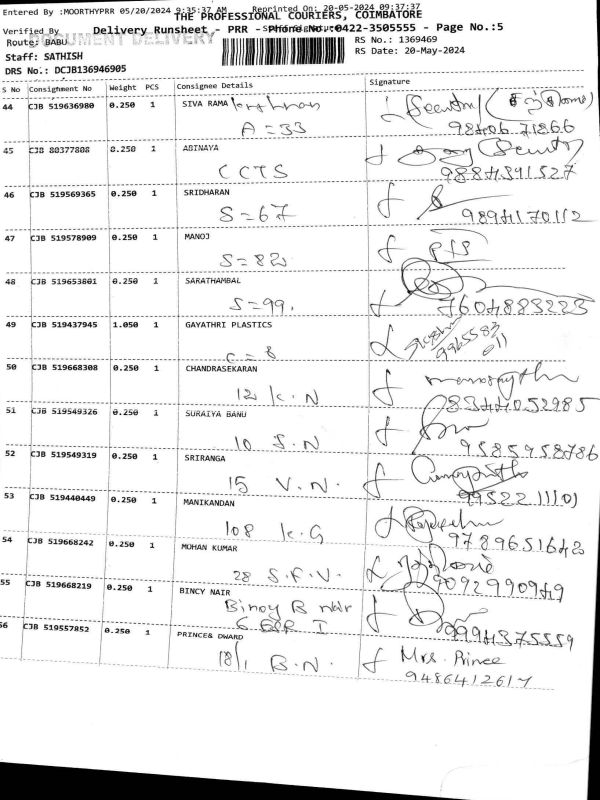 Entered By :MOORTHYPRR 05/20/2024 9:35:37 AM Reprinted On: 20-05-2024 09:37:37
THE PROFESSIONAL COURIERS, COIMBATORE
Verified By Delivery Runsheet - PRR - Phone No.:0422-3505555 - Page No.:5
DOCUMENT DELIVERY
Route: BABU RS No.: 1369469
Staff: SATHISH RS Date: 20-May-2024
DRS No.: DCJB136946905
S No Consignment No Weight PCS Consignee Details Signature
44 CJB 519636980 0.250 1 SIVA RAMA
A = 33 98406 71866
45 CJB 80377808 0.250 1 ABINAYA
CCTS 9884391527
46 CJB 519569365 0.250 1 SRIDHARAN
S = 67 9894170112
47 CJB 519578909 0.250 1 MANOJ
S = 82
48 CJB 519653801 0.250 1 SARATHAMBAL
S = 99. 7604883223
49 CJB 519437945 1.050 1 GAYATHRI PLASTICS
C = 8 9965583
011
50 CJB 519668308 0.250 1 CHANDRASEKARAN
12 K.N 8344052985
51 CJB 519549326 0.250 1 SURAIYA BANU
10 S.N 9585958786
52 CJB 519549319 0.250 1 SRIRANGA
15 V.N. 9952211101
53 CJB 519440449 0.250 1 MANIKANDAN
108 K.G 9789651642
54 CJB 519668242 0.250 1 MOHAN KUMAR
28 S.F.V. 9092990949
55 CJB 519668219 0.250 1 BINCY NAIR
Bincy B nair
9994375559
56 CJB 519557852 0.250 1 PRINCE& DWARD
18/1 B.N. Mrs. Prince
9486412617